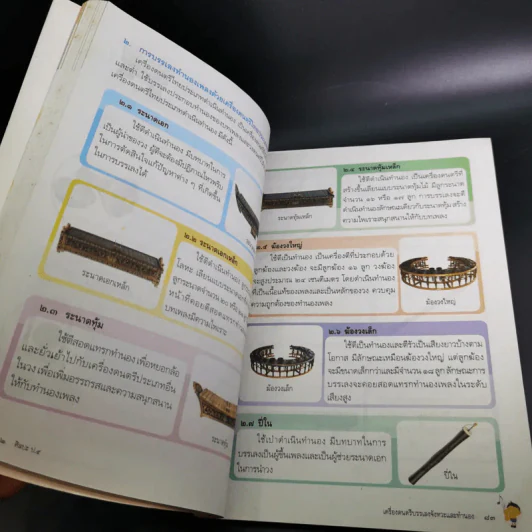 ๒. การบรรเลงทำนองเพลงด้วยเครื่องดนตรีไทย
เครื่องดนตรีไทยประเภทดำเนินทำนอง
เครื่องดนตรีไทยประเภทดำเนินทำนอง มีดังนี้
๒.๑ ระนาดเอก
ใช้ตีดำเนินทำนอง มีบทบาทในการ
เป็นผู้นำของวง ผู้ตีจะต้องมีปฏิภาณไหวพริบ
ในการตัดสินใจแก้ปัญหาต่าง ๆ ที่เกิดขึ้น
ในการบรรเลงได้
ระนาดเอกเหล็ก
๒.๒ ระนาดเอกเหล็ก
ใช้ตีดำเนินทำนอง
โลหะ เลียนแบบระนาดเอก
๒.๓ ระนาดทุ้ม
ใช้ตีสอดแทรกทำนอง เพื่อหยอกล้อ
และยั่วเย้าไปกับเครื่องดนตรีประเภทอื่น
ในวง เพื่อเพิ่มอรรถรสและความสนุกสนาน
ให้กับทำนองเพลง
ระนาดทุ้ม
ศิลปะ ป.๕
๒.๔ ระนาดทุ้มเหล็ก
ใช้ตีดำเนินทำนอง เป็นเครื่องดนตรีที่
สร้างขึ้นเลียนแบบระนาดทุ้มไม้ มีลูกระนาด
จำนวน ๑๖ หรือ ๑๗ ลูก การบรรเลงจะตี
ดำเนินทำนองลักษณะเดียวกับระนาดทุ้ม สร้าง
ความไพเราะสนุกสนานให้กับบทเพลง
ระนาดทุ้มเหล็ก
๒.๕ ฆ้องวงใหญ่
ใช้ตีเป็นทำนอง เป็นเครื่องตีที่ประกอบด้วย
ลูกฆ้องและวงฆ้อง จะมีลูกฆ้อง ๑๖ ลูก วงฆ้อง
จะสูงประมาณ ๒๔ เซนติเมตร โดยดำเนินทำนอง
ที่เป็นเนื้อแท้ของเพลงและเป็นหลักของวง ควบคุม
ความถูกต้องของทำนองเพลง
ฆ้องวงใหญ่
๒.๖ ฆ้องวงเล็ก
ใช้ตีเป็นทำนองและตีรัวเป็นเสียงยาวบ้างตาม
โอกาส มีลักษณะเหมือนฆ้องวงใหญ่ แต่ลูกฆ้อง
จะมีขนาดเล็กกว่าและมีจำนวน ๑๘ ลูก ลักษณะการ
บรรเลงจะคอยสอดแทรกทำนองเพลงในระดับ
เสียงสูง
ฆ้องวงเล็ก
๒.๗ ปี่ใน
ใช้เป่าดำเนินทำนอง มีบทบาทในการ
บรรเลงเป็นผู้ขึ้นเพลงและเป็นผู้ช่วยระนาดเอก
ในการนำวง
ปี่ใน
เครื่องดนตรีบรรเลงจังหวะและทำนอง ๘๓